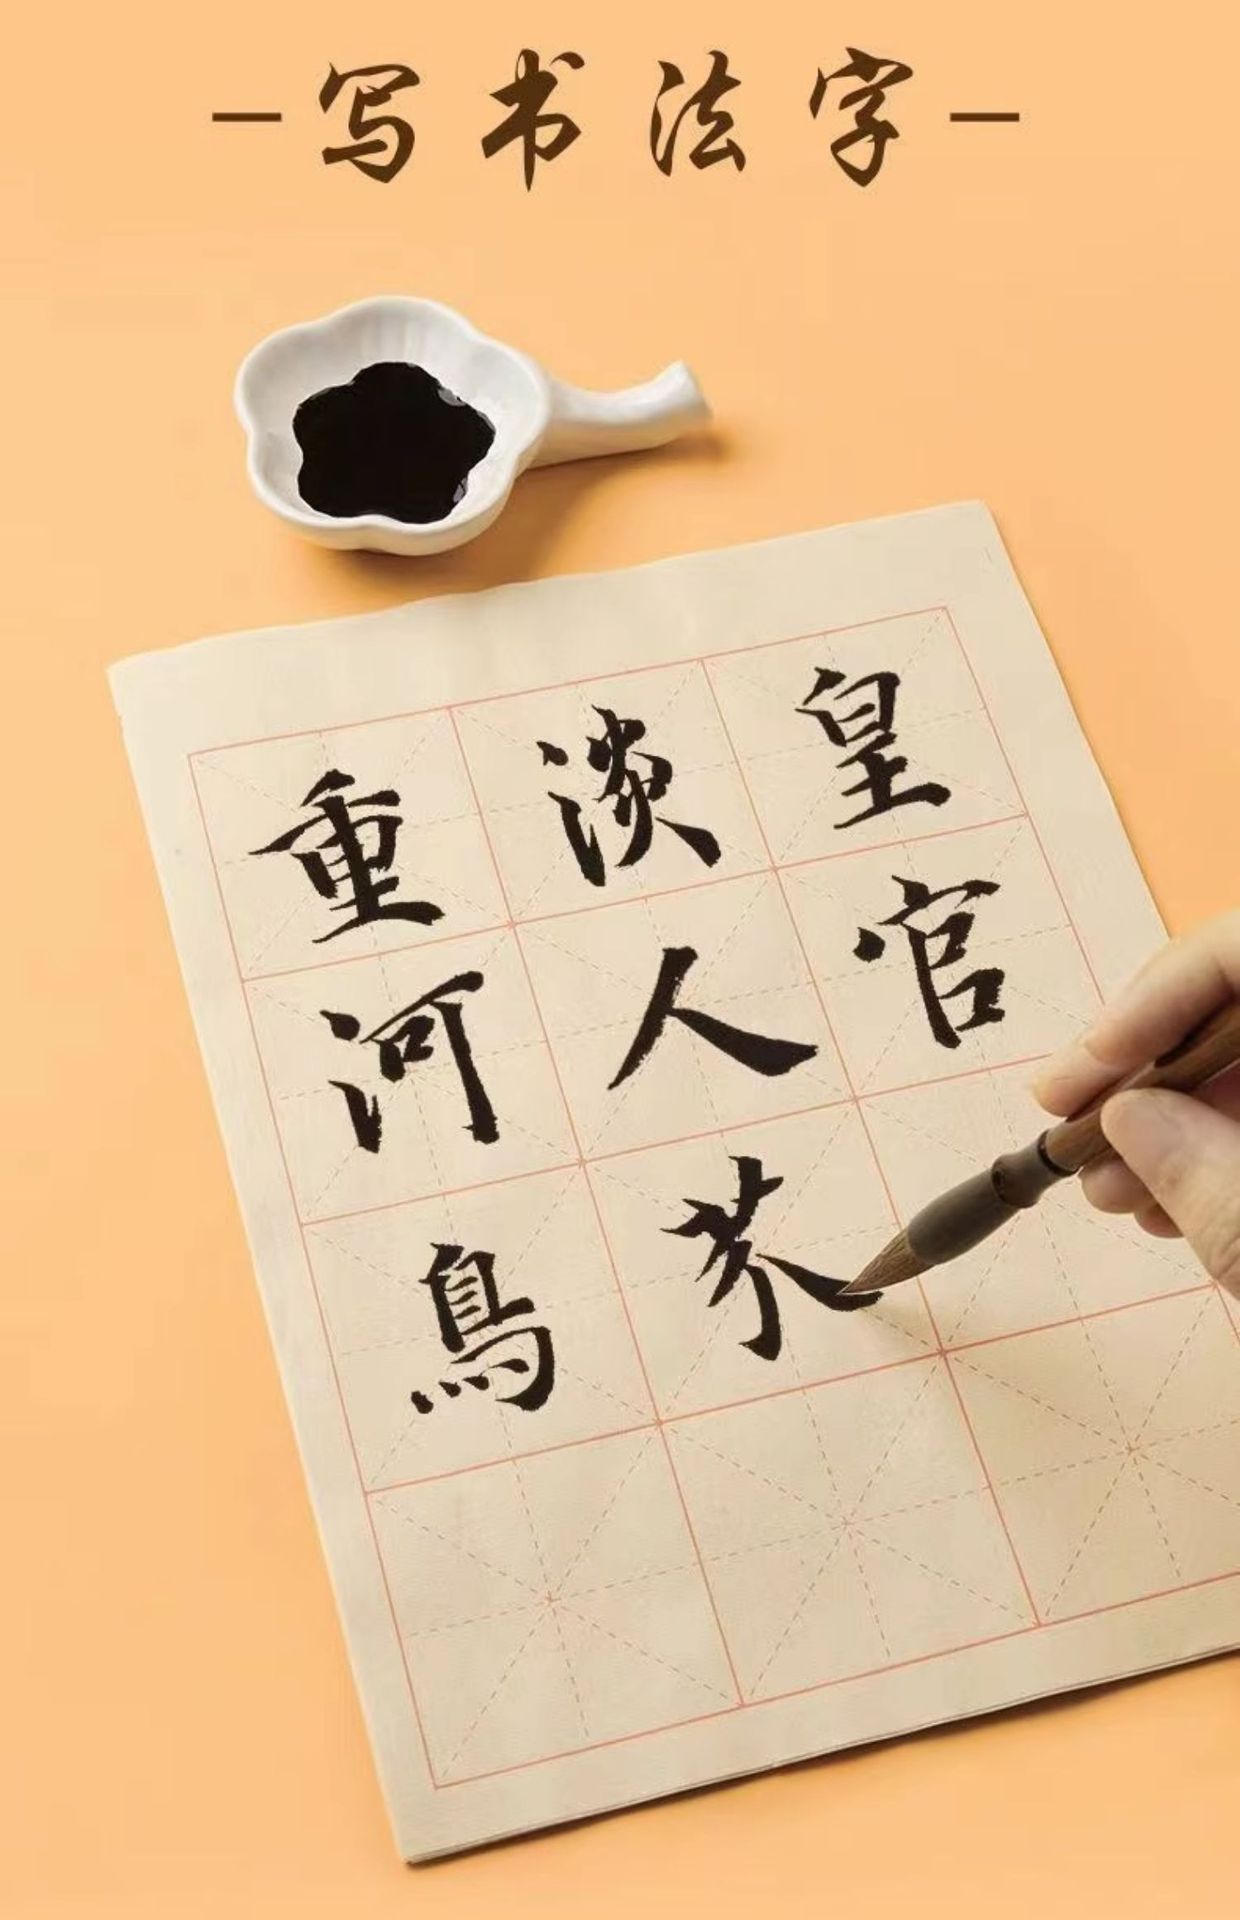 —写书法字—
重淡皇
河人官
鳥芥